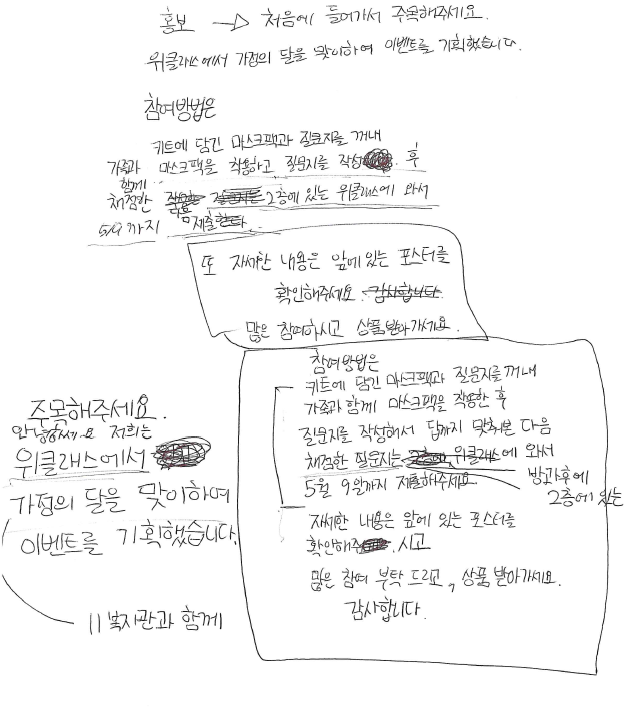 홍보 → 처음에 들어가서 주목해주세요.
위클래스에서 가정의 달을 맞이하여 이벤트를 기획했습니다.
참여방법은
키트에 담긴 마스크팩과 질문지를 꺼내
가족과 함께 마스크팩을 착용하고 질문지를 작성 후
채점한 다음 2층에 있는 위클래스에 와서
5/9까지 제출한다.
또 자세한 내용은 앞에 있는 포스터를
확인해주세요. 감사합니다.
많은 참여하시고 상품받아가세요.
주목해주세요.
안녕하세요 저희는
위클래스에서
가정의 달을 맞이하여
이벤트를 기획했습니다.
11 복지관과 함께
참여방법은
키트에 담긴 마스크팩과 질문지를 꺼내
가족과 함께 마스크팩을 착용한 후
질문지를 작성해서 답까지 맞춰본 다음
채점한 질문지는 2층에 위클래스에 와서
방과후에
2층에 있는
5월 9일까지 제출해주세요.
자세한 내용은 앞에 있는 포스터를
확인해주시고
많은 참여 부탁 드리고, 상품 받아가세요.
감사합니다.